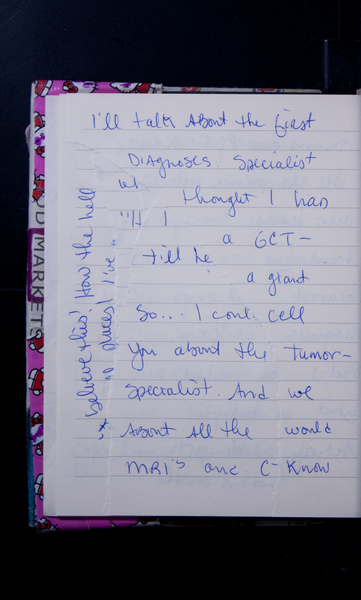 I'll talk About the first
DIAgnoses. Specialist
thought I had
"H I
a GCT-
till he
a giant
So... I cont. cell
you about the tumor-
specialist. And we
About all the would
MRI's and C- Know
believe this! How the hell
places! I've
D MARKETS